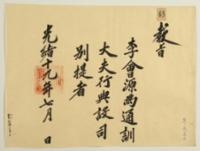 教旨
李會源為通訓
大夫行典設司
別提者
光緒十九年七月 日